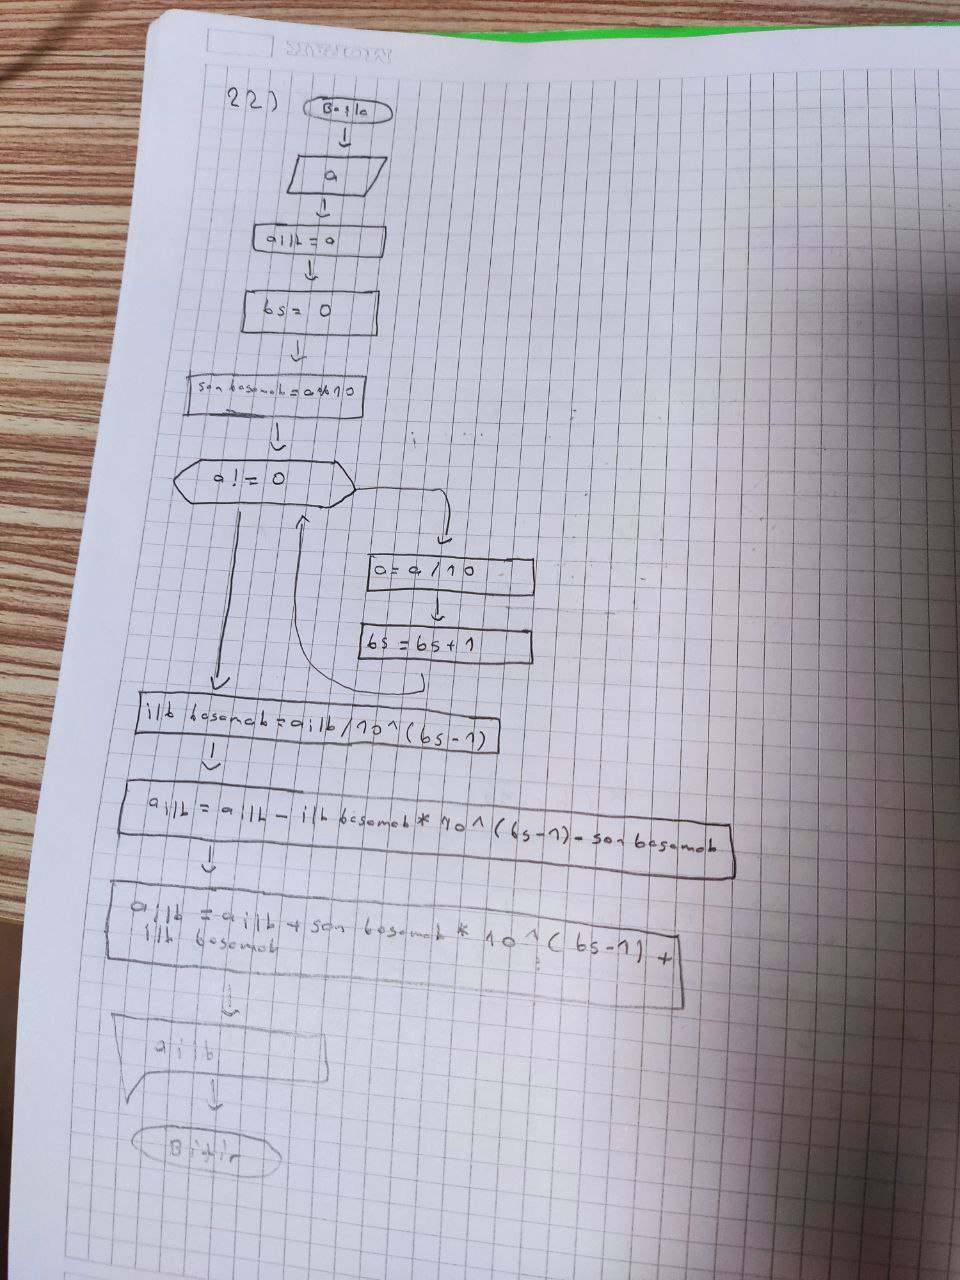 22) Başla
a
ailk = a
bs = 0
son basamak = a%10
a != 0
a = a / 10
bs = bs + 1
ilk basamak = ailk / 10^(bs-1)
ailk = ailk - ilk basamak * 10^(bs-1) - son basamak
ailk = ailk + son basamak * 10^(bs-1) +
ilk basamak
ailk
Bitir